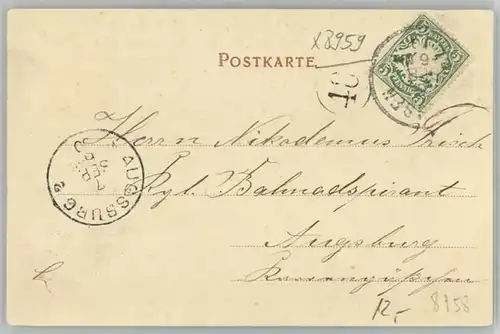 x8959
POSTKARTE.
5 5
5 5
10
Herrn Nikodemus Frisch
Kgl. Bahnadspirant
Augsburg
AUGSBURG 2
7
SEP
12,-
8958